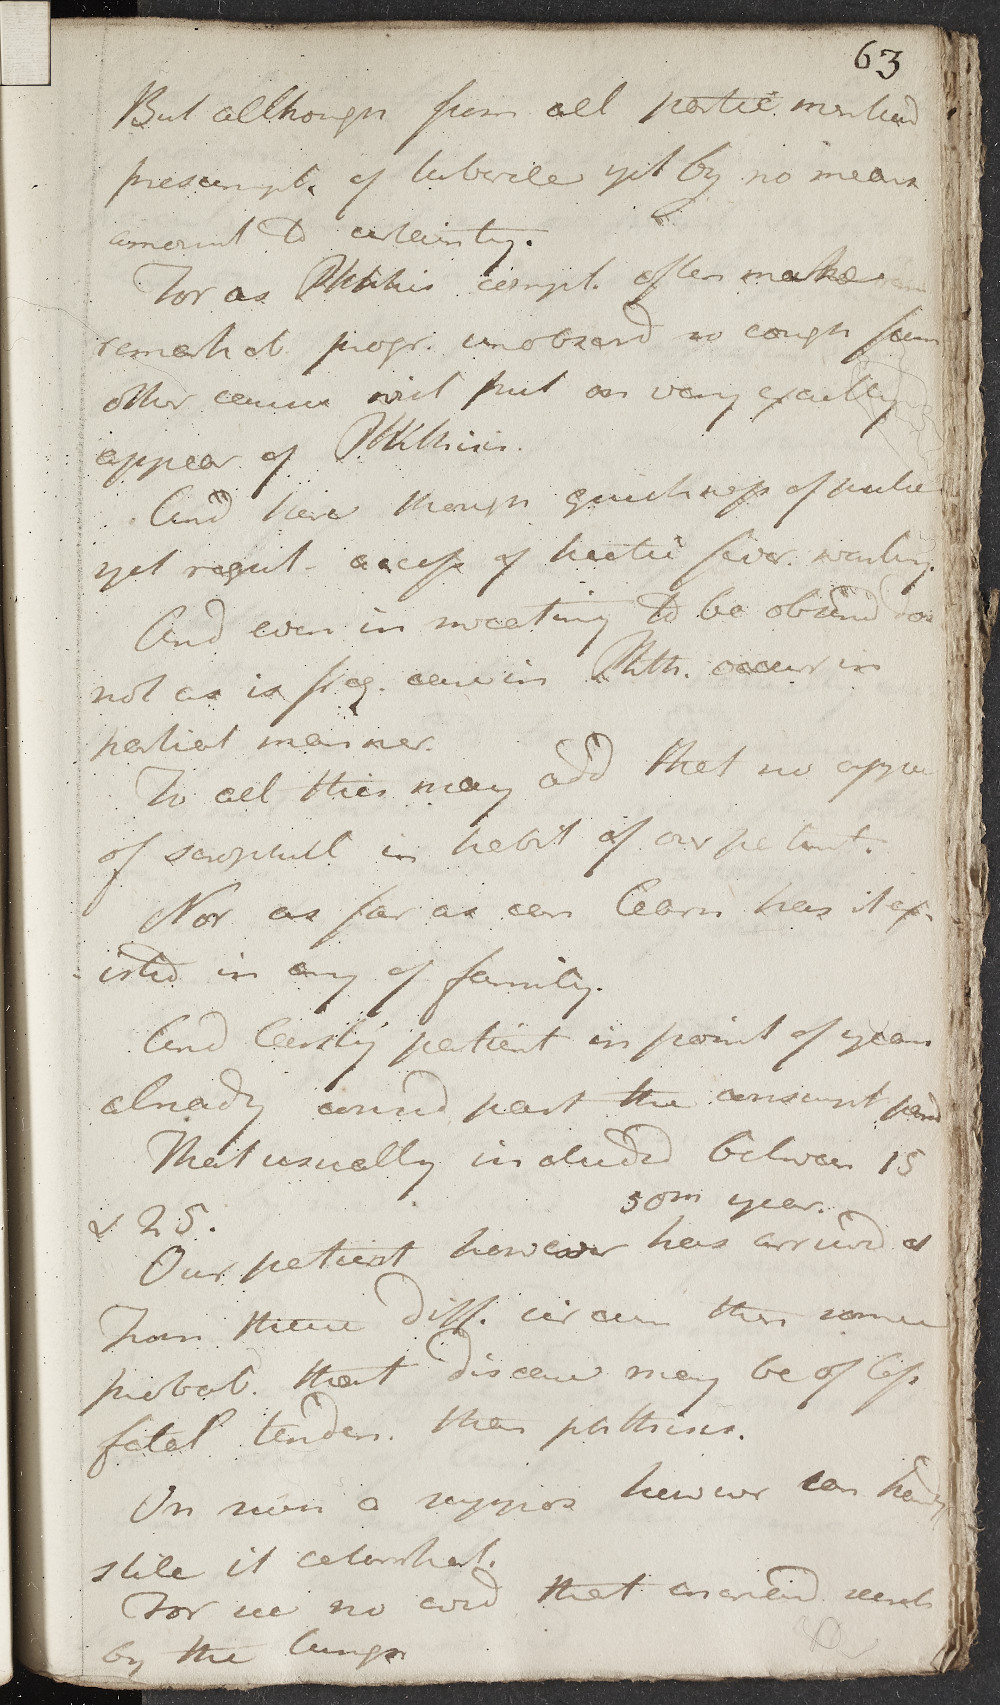 63
But although from all partic. mention'd
presumpt. of tubercle yet by no means
amount to certainty.
For as Phthisis compl. often make
remarkab. progr. unobserv'd so cough from
other cause will put on very exactly
appear. of Phthisis.
And here though quickness of pulse
yet regul. access of hectic fever. wanting.
And even in sweating to be observ'd does
not as is freq. case in Phth. occur in
partial manner.
To all this may add that no appear
of scrophul in habit of our patient.
Nor as far as can learn has it ex-
isted in any of family.
And lastly patient in point of years
already arriv'd past the consumpt period
That usually included between 15
& 25.
50th year.
Our patient however has arriv'd at
From these diff. circum then some
probab. that disease may be of less
fatal tenden. than phthisis.
On such a suppos however can hardly
stile it catarrhal.
For we no cold that
by the lungs